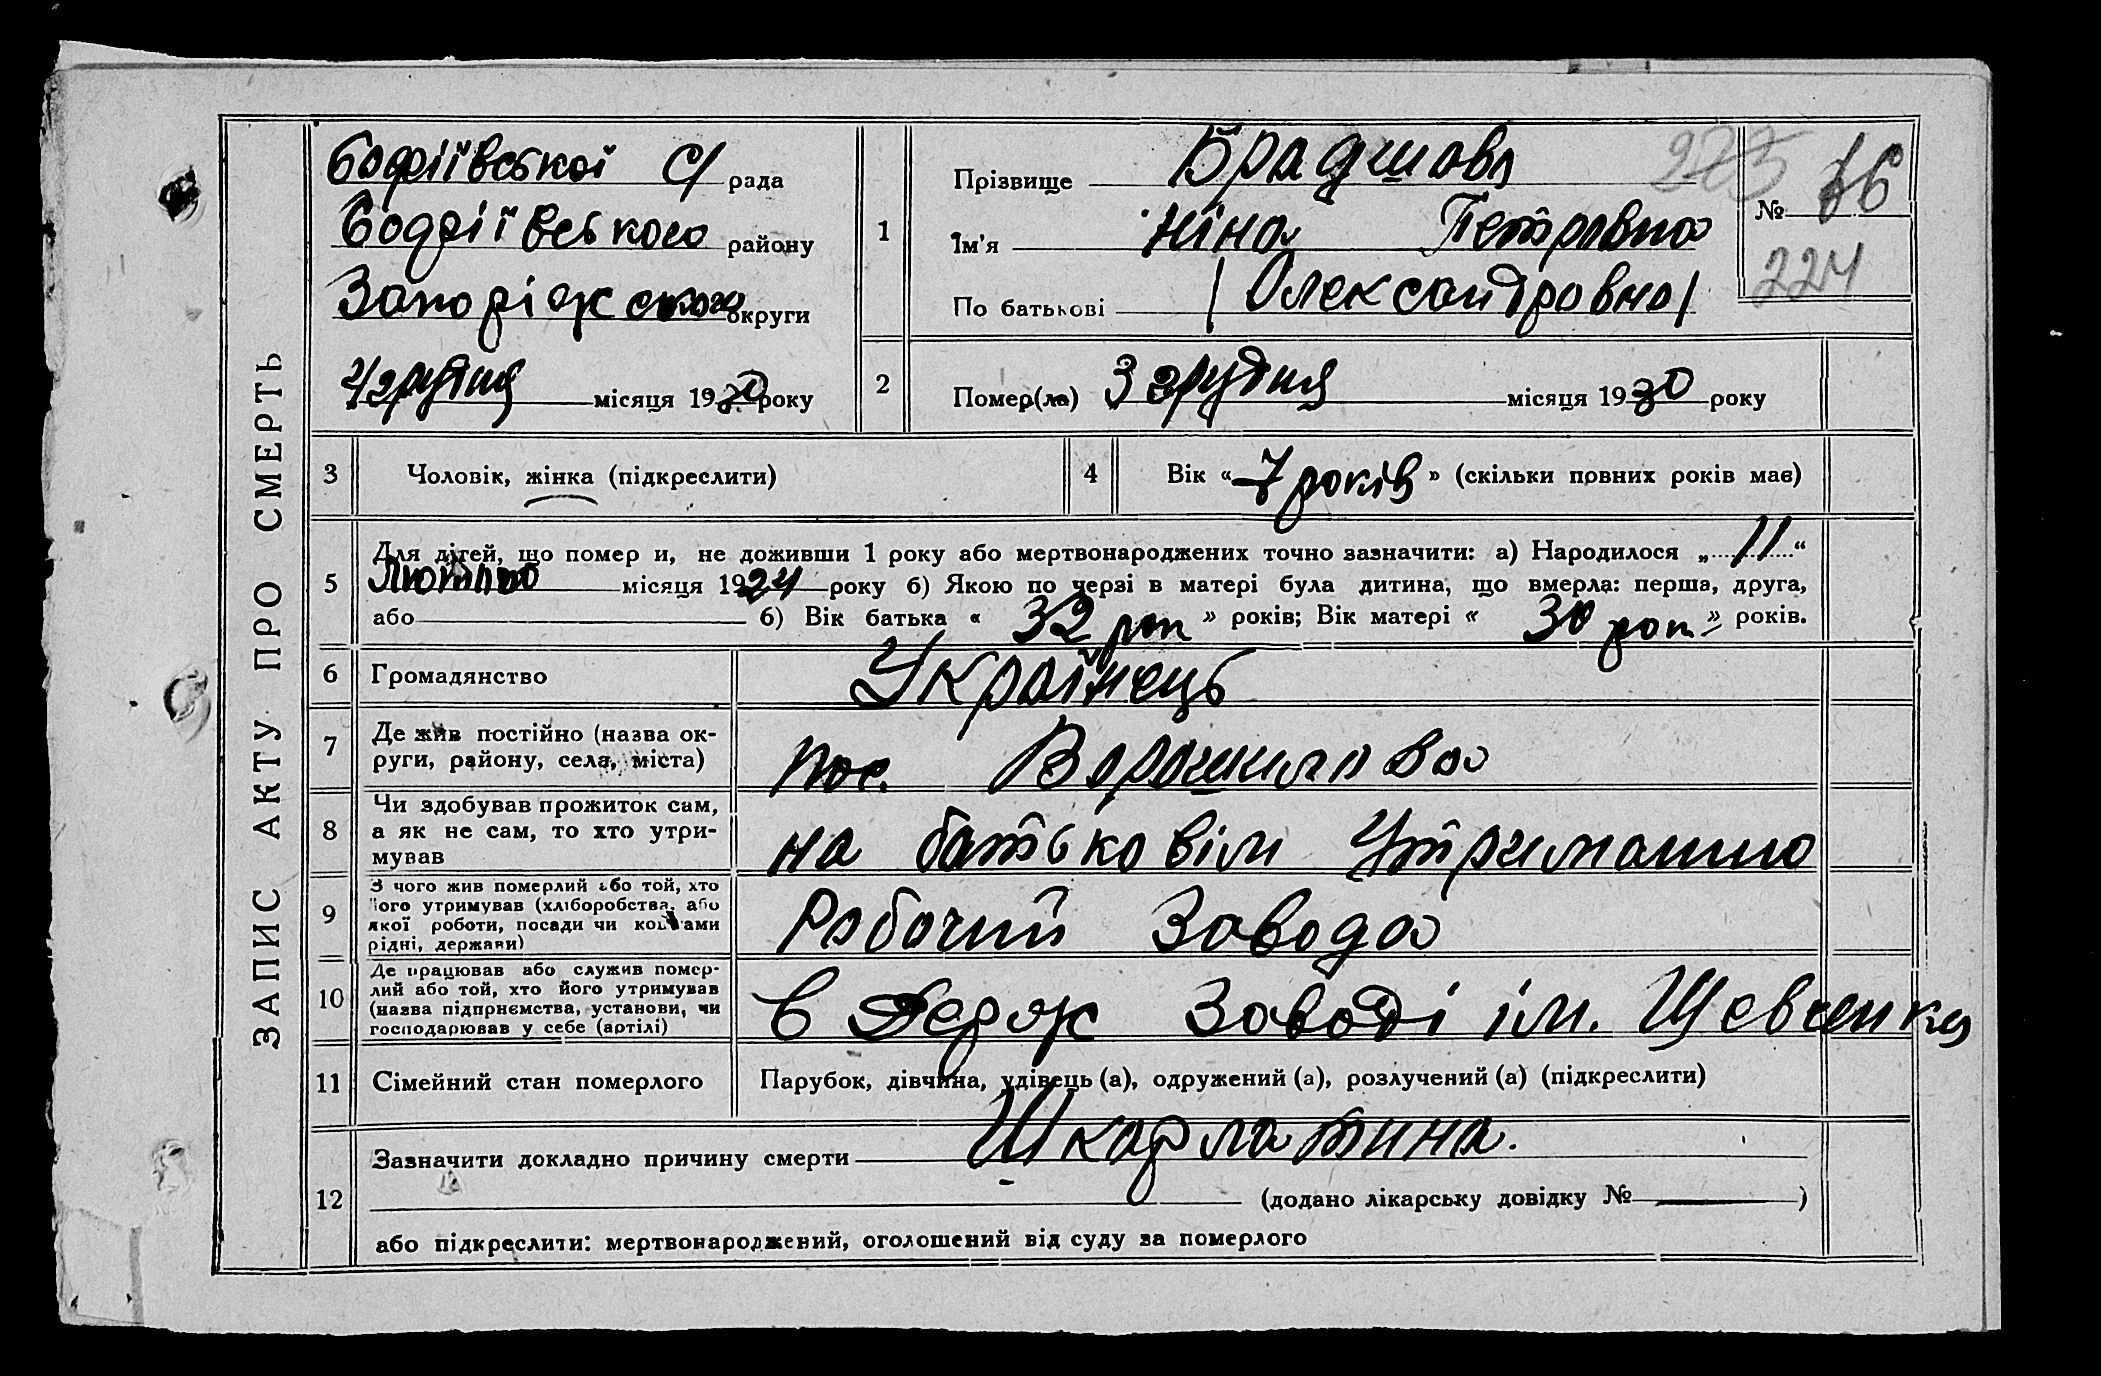 ЗАПИС АКТУ ПРО СМЕРТЬ
Софіївської С/ рада
Софіївського району
Запоріжської округи
4/грудня місяця 1930 року
1
Прізвище Брадшова
Ім'я Ніна Петрівна
По батькові /Олександровна/
223
№ 16
224
2
Помер(ла) 3 грудня місяця 1930 року
3 Чоловік, жінка (підкреслити)
4 Вік «7 років» (скільки повних років має)
5
Для дітей, що помер и, не доживши 1 року або мертвонароджених точно зазначити: а) Народилося „11“
Лютого місяця 1924 року б) Якою по черзі в матері була дитина, що вмерла: перша, друга,
або б) Вік батька « 32 рок » років; Вік матері « 30 рок » років.
6 Громадянство Українець
7 Де жив постійно (назва ок-
руги, району, села, міста)
пос. Ворошилова
8 Чи здобував прожиток сам,
а як не сам, то хто утри-
мував
на батьковім Утриманню
9 З чого жив померлий або той, хто
його утримував (хліборобства, або
якої роботи, посади чи коштами
рідні, держави)
Робочий Завода
10 Де працював або служив помер-
лий або той, хто його утримував
(назва підприємства, установи, чи
господарював у себе (артілі)
в Держ Заводі ім. Шевченка
11 Сімейний стан померлого Парубок, дівчина, удівець (а), одружений (а), розлучений (а) (підкреслити)
12 Зазначити докладно причину смерти Шкарлатина.
(додано лікарську довідку № )
або підкреслити: мертвонароджений, оголошений від суду за померлого